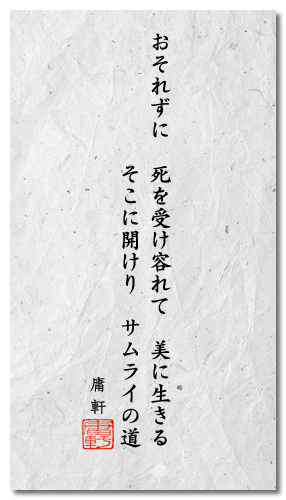 おそれずに　死を受け容れて　美に生きる
そこに開けり　サムライの道
庸軒
庸軒